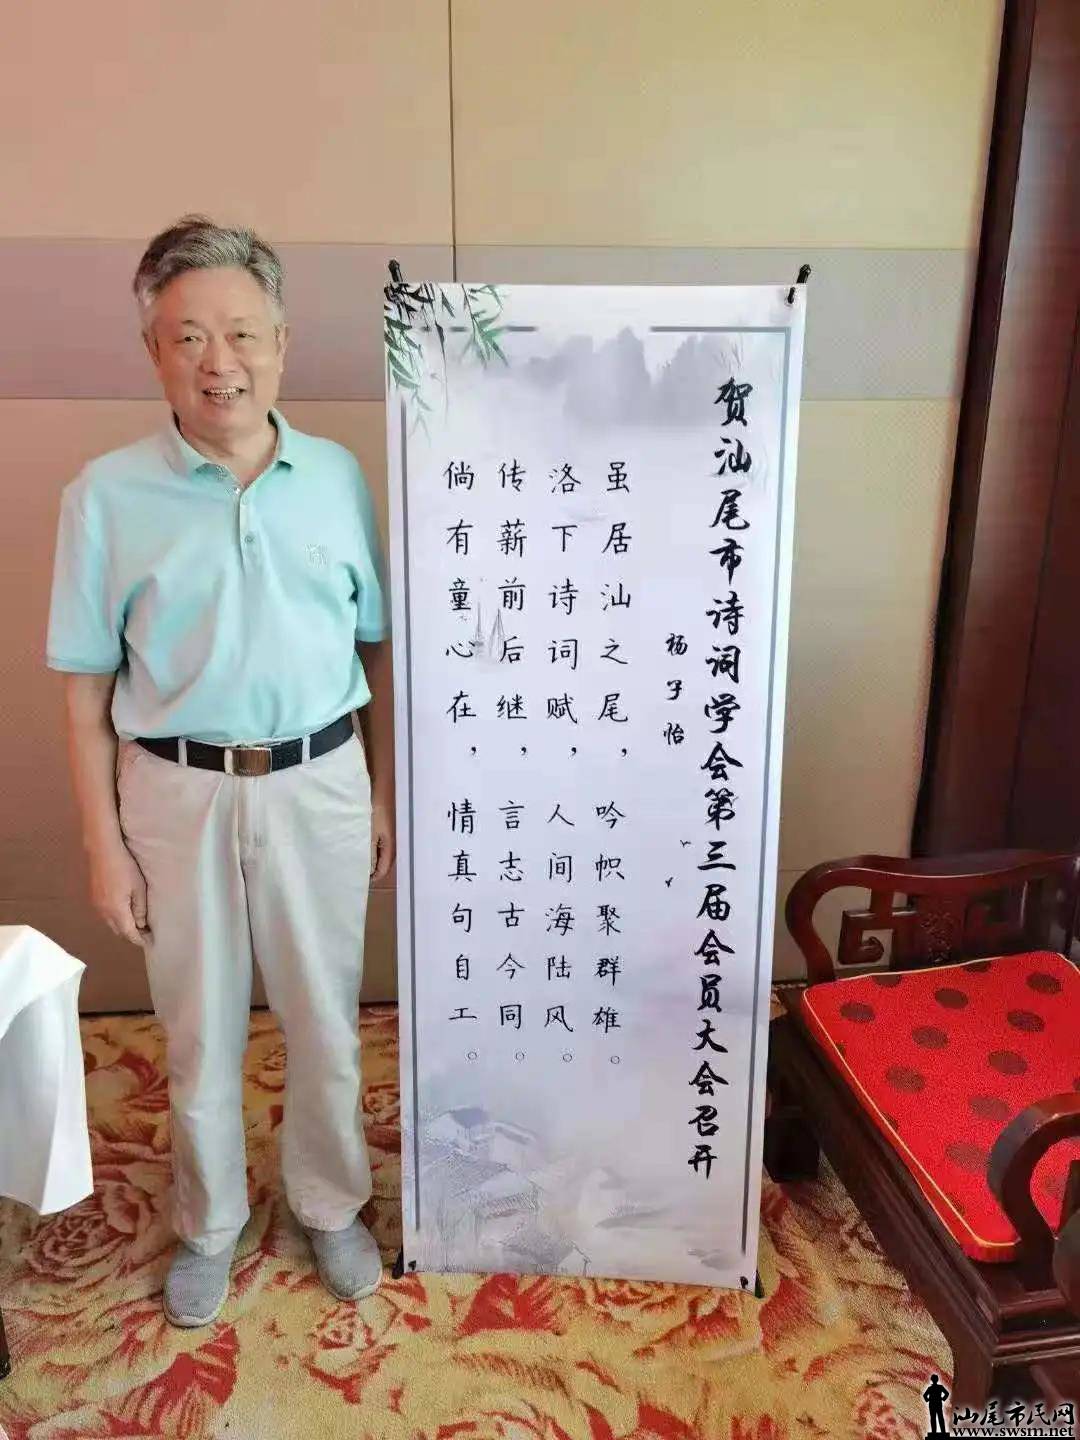 贺汕尾市诗词学会第三届会员大会召开
杨子怡
虽居汕之尾，吟帜聚群雄。
洛下诗词赋，人间海陆风。
传薪前后继，言志古今同。
倘有童心在，情真句自工。
汕尾市民网
www.swsm.net